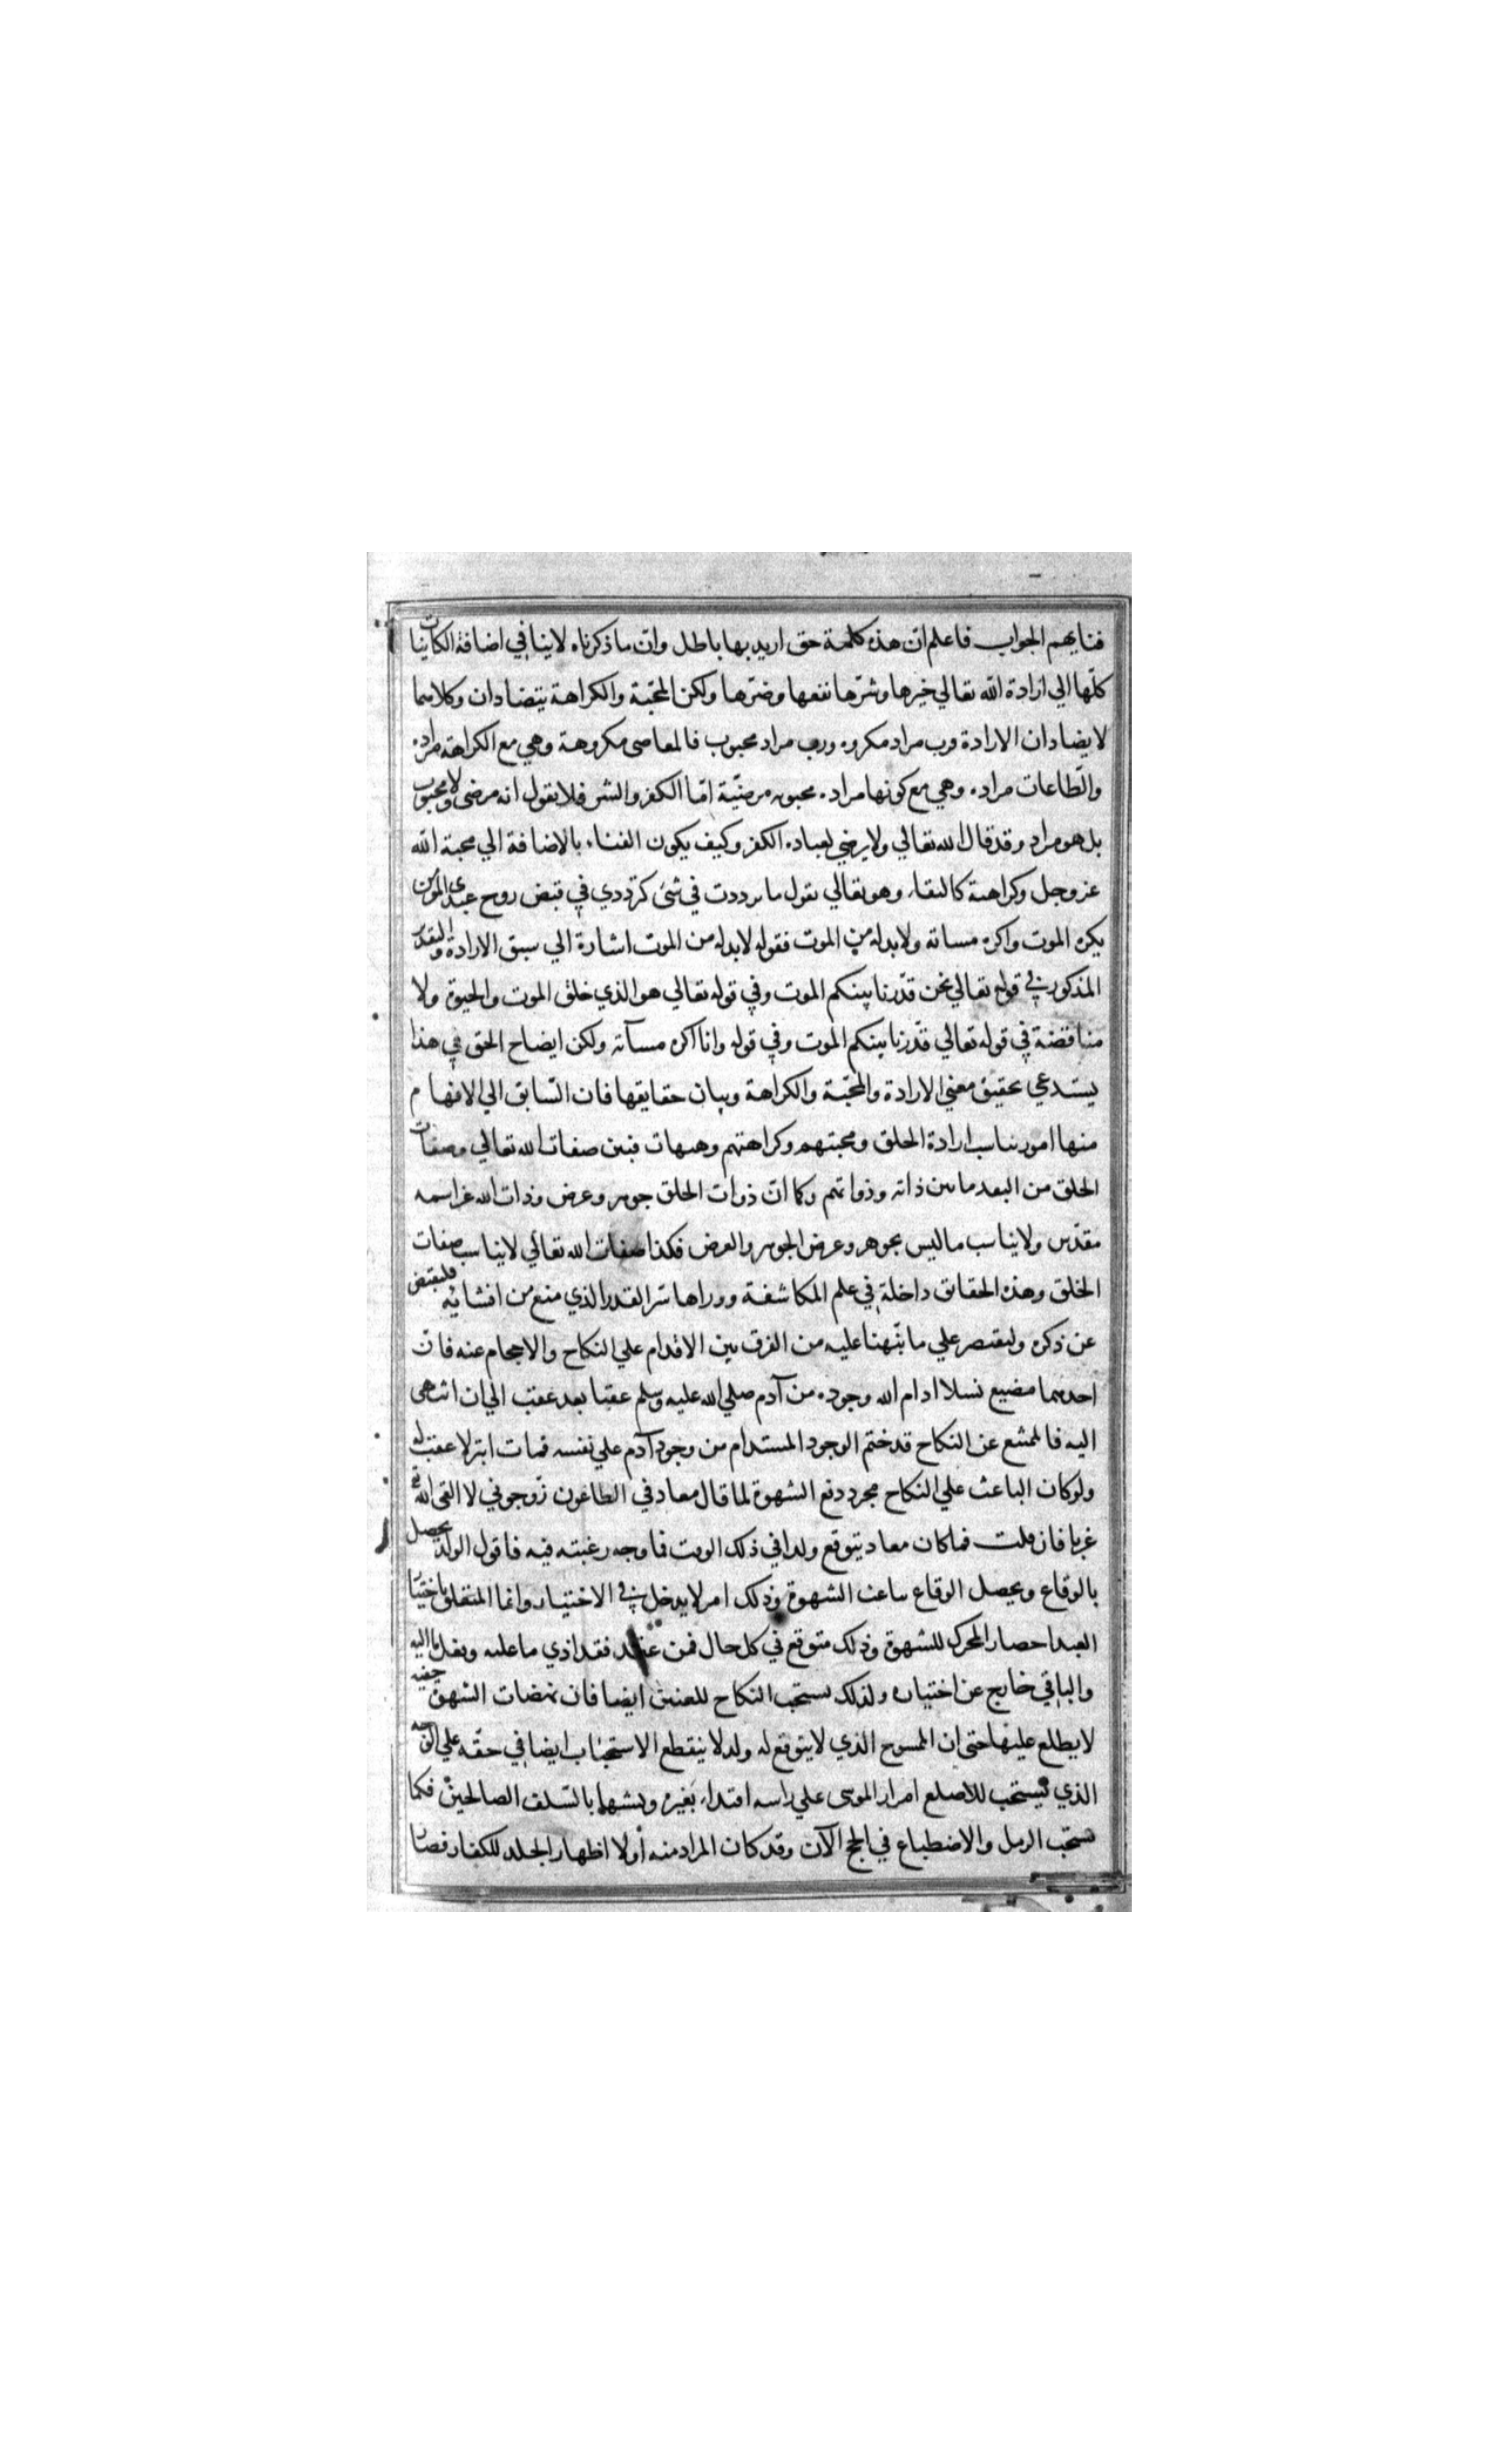 فنايهم الجواب فاعلم ان هذه كلمة حق اريد بها باطل وان ما ذكرناه لاينافي اضافة الكاينات
كلها الي ارادة الله تعالي خيرها وشرها نفعها وضرها ولكن المحبة والكراهة يتضادان وكلاهما
لايضادان الارادة فرب مراد مكروه ورب مراد محبوب فالمعاصي مكروهة وهي مع الكراهة مراده
والطاعات مراده وهي مع كونها مراده محبوبه مرضية اما الكفر والشر فلانقول انه مرضي ولامحبوب
بل هو مراد وقد قال الله تعالي ولايرضي لعباده الكفر وكيف يكون الفناء بالاضافة الي محبة الله
عزوجل وكراهته كالبقاء وهو تعالي يقول ماترددت في شئ كترددي في قبض روح عبدي المومن
يكره الموت واكره مساته ولابد له من الموت فقوله لابد له من الموت اشارة الي سبق الارادة والتقدير
المذكور في قوله تعالي نحن قدرنا بينكم الموت وفي قوله تعالي هو الذي خلق الموت والحيوة ولا
مناقضة في قوله تعالي قدرنا بينكم الموت وفي قوله وانا اكره مسآته ولكن ايضاح الحق في هذا
يستدعي تحقيق معني الارادة والمحبة والكراهة وبيان حقايقها فان السابق الي الافهام
منها امور تناسب ارادة الخلق ومحبتهم وكراهتهم وهيهات فبين صفات الله تعالي وصفات
الخلق من البعد مابين ذاته وذواتهم وكما ان ذوات الخلق جوهر وعرض وذات الله عزاسمه
مقدس ولايناسب ماليس بجوهر وعرض الجوهر والعرض فكذا صفات الله تعالي لايناسب صفات
الخلق وهذه الحقائق داخلة في علم المكاشفة ووراها سر القدر الذي منع من افشائه فلنقبض
عن ذكره ولنقتصر علي مانبهنا عليه من الفرق بين الاقدام علي النكاح والاحجام عنه فان
احدهما مضيع نسلا ادام الله وجوده من آدم صلي الله عليه وسلم عقبا بعد عقب الي ان انتهي
اليه فالممتنع عن النكاح قد ختم الوجود المستدام من وجود آدم علي نفسه فمات ابتر لاعقب له
ولو كان الباعث علي النكاح مجرد دفع الشهوة لما قال معاد في الطاعون زوجوني لا القي الله
عزبا فان قلت فما كان معاد يتوقع ولدا في ذلك الوقت فما وجه رغبته فيه فاقول الولد يحصل
بالوقاع ويحصل الوقاع بباعث الشهوة وذلك امر لايدخل في الاختيار وانما المتعلق باختيار
العبد احضار المحرك للشهوة وذلك متوقع في كل حال فمن عقد فقد ادي ما عليه وفعل ما اليه
والباقي خارج عن اختياره ولذلك يستحب النكاح للعنين ايضا فان نهضات الشهوة خفيه
لايطلع عليها حتي ان الممسوح الذي لايتوقع له ولد لا ينقطع الاستحباب ايضا في حقه علي الوجه
الذي يستحب للاصلع امرار الموسي علي راسه اقتداء بغيره وتشبها بالسلف الصالحين فكما
يستحب الرمل والاضطباع في الحج الآن وقد كان المراد منه أولا اظهار الجلد للكفار فصار